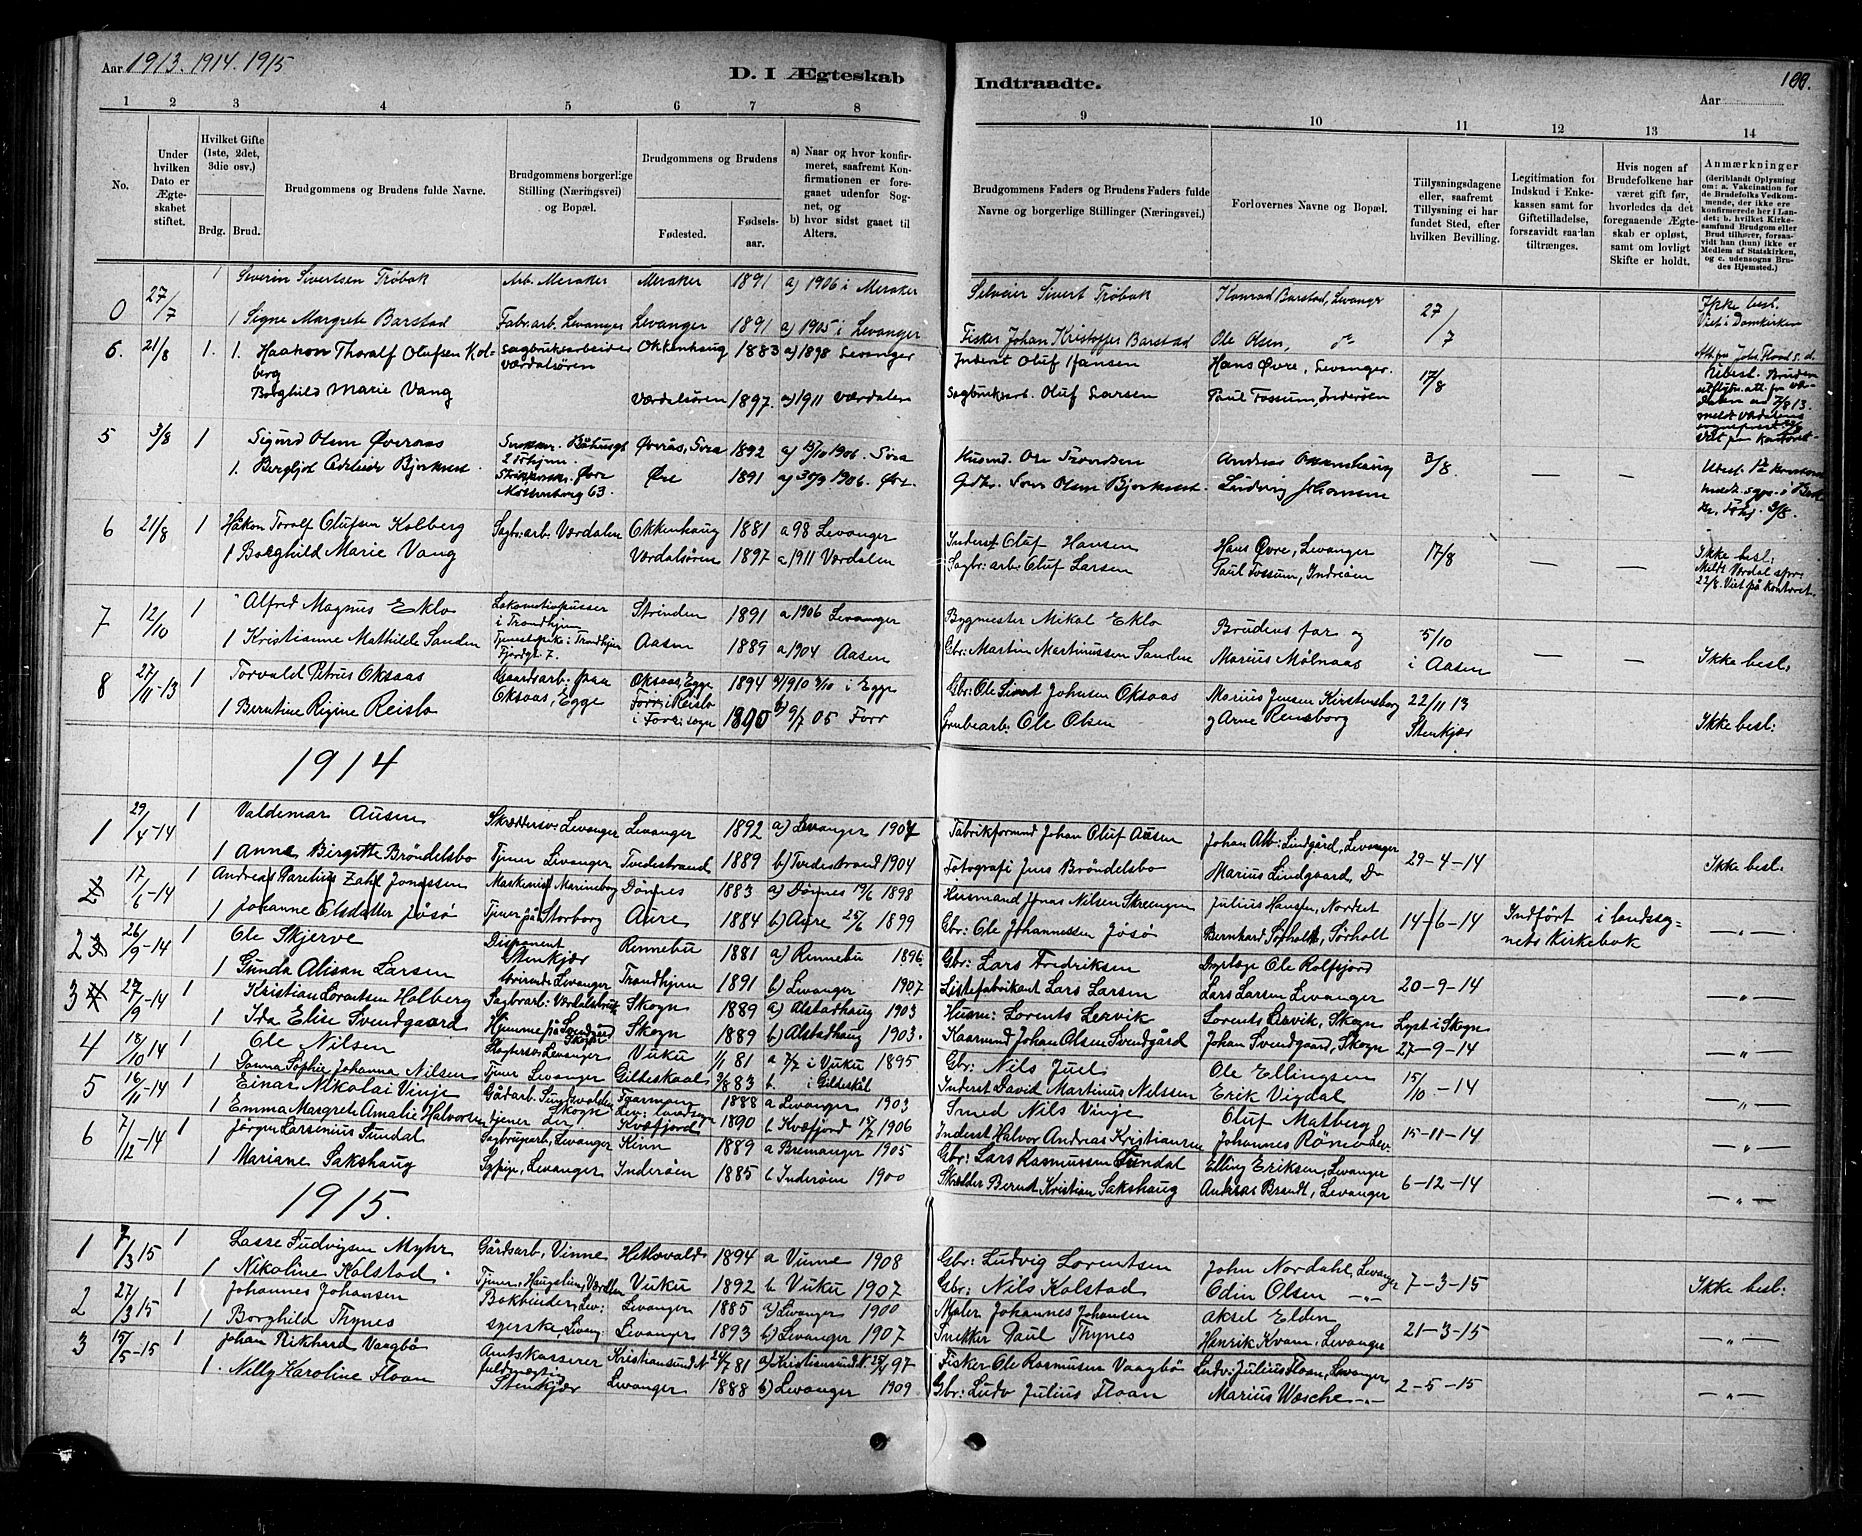 Aar 1913. 1914. 1915
D. I Ægteskab Indtraadte.
100.
Aar
1 2 3 4 5 6 7 8 9 10 11 12 13 14
No.
Under hvilken Dato er Ægteskabet stiftet.
Hvilket Gifte (1ste, 2det, 3die osv.)
Brdg. Brud.
Brudgommens og Brudens fulde Navne.
Brudgommens borgerlige Stilling (Næringsvei) og Bopæl.
Brudgommens og Brudens
Fødested. Fødselsaar.
a) Naar og hvor konfirmeret, saafremt Konfirmationen er foregaaet udenfor Sognet, og
b) hvor sidst gaaet til Alters.
Brudgommens Faders og Brudens Faders fulde Navne og borgerlige Stillinger (Næringsvei.)
Forlovernes Navne og Bopæl.
Tillysningsdagene eller, saafremt Tillysning ei har fundet Sted, efter hvilken Bevilling.
Legitimation for Indskud i Enkekassen samt for Giftetilladelse, forsaavidt saadan tiltrænges.
Hvis nogen af Brudefolkene har været gift før, hvorledes da det foregaaende Ægteskab er opløst, samt om lovligt Skifte er holdt.
Anmærkninger (deriblandt Oplysning om: a. Vakcination for de Brudefolks Vedkommende, der ikke ere konfirmerede her i Landet; b. hvilket Kirkesamfund Brudgom eller Brud tilhører, forsaavidt han (hun) ikke er Medlem af Statskirken, og c. udensogns Brudes Hjemsted.)
Severin Sivertsen Trøbak Arb. Meraker Meraker 1891 a) 1906 i Meraker Selveier Sivert Trøbak Konrad Barstad, Levanger 27 Ikke besl.
0 27/7 1 Signe Margrete Barstad Fabr. arb. Levanger Levanger 1891 a) 1905 i Levanger Fisker Johan Kristoffer Barstad Ole Olsen, do /7 Viet i Domkirken
6. 21/8 1. 1. Haakon Thoralf Olufsen Kolberg Sagbruksarbeider Værdalsören Okkenhaug 1883 a) 1898 Levanger Inderst Oluf Hansen Hans Øvre, Levanger. 17/8
Borghild Marie Vang Værdalsören 1897. a) 1911 Værdalen Sagbruksarb. Oluf Larsen Paul Fossum, Inderöen
5 3/8 1 Sigurd Olsen Øveraas Øveraas, Sora 1892 a) 15/10 1906. Sora Husmd. Ole Trondsen Andreas Okkenhaug 3/8. — —
1. Bergljot Adelude Bjorknest. Øre 1891 a) 30/9 1906. Øre Gdbr. Olsen Bjorknest. Ludvig Johansen
6 21/8 1 Håkon Toralf Olufsen Kolberg Sagbr: arb. Værdalen Okkenhaug 1881 a 98 Levanger Inderst Oluf Hansen Hans Øvre, Levanger 17/8 — — Ikke besl:
1 Borghild Marie Vang Værdalsören 1897 a 1911 Værdalen Sagbr: arb: Oluf Larsen Paul Fossum, Indröen Meldt Værdal spr. 22/8. Viet på kontoret.
7 12/10 1 Alfred Magnus Eklo Lokomotivpusser i Trondhjem Strinden 1891 a 1906 Levanger Bygmester Mikal Eklo Brudens far og 5/10
1 Kristianne Mathilde Sanden Tjenestepike i Trondhjem Fjordgt. 7. Aasen 1889 a 1904 Aasen Gbr: Martin Martinussen Sanden Marius Mølnaas i Aasen — — Ikke besl:
8 27/11-13 1 Torvald Petrus Oksaas Gaardsarb. paa Oksaas, Egge Oksaas, Egge 1894 a) 1910 2/10 i Egge Gbr: Ole Sivert Johnsen Oksaas Marius Jensen Kirstensborg 22/11 13
1 Berntine Regine Reislo Forr: i Reislo i Forr: sogn 1890 b) 9/7 05 Forr Grubearb: Ole Olsen og Arne Rensborg Stenkjær Ikke besl:
1914
1 29/4-14 1 Valdemar Ausen Skræddersv: Levanger Levanger 1892 a) Levanger 1907 Fabrikformand Johan Oluf Ausen Johan Alb: Lindgård, Levanger
1 Anna Birgitte Bröndelsbo Tjener Levanger Tvedestrand 1889 b) Tvedestrand 1904 Fotografi Jens Bröndelsbo Marius Lindgaard, Do 29-4-14 Ikke besl:
2 17/6-14 1 Andreas Paretius Zahl Jonassen Maskenist Marineborg Dönnes 1883 a) Dönnes 19/6 1898 Husmand Jonas Nilsen Skrenngen Julius Hansen, Nordset
1 Johanne Olsdatter Jösö Tjener på Storborg Aure 1884 b) Aure 25/6 1899 Gbr: Ole Johannessen Jösö Bernhard Sørholt, Sørholt 14-6-14 Indfört i landssognets Kirkebok —„—
2 3 26/9-14 1 Ole Skjerve Disponent Stenkjær Rennebu 1881 a) Rennebu 1896. Gbr: Lars Fredriksen Dyrlæge Ole Rolfsjord
1 Gunda Alisan Larsen Levanger Trondhjem 1891 b) Levanger 1907 Listefabrikant Lars Larsen Lars Larsen Levanger 20-9-14 —„—
3 4 27/9-14 1 Kristian Lorentsen Holberg Sagbrarb: Værdalsbruk Skogn 1889 a) Alstadhaug 1903 Husm: Lorents Lervik Lorents Lervik, Skogn Lyst i Skogn
1 Ida Elise Svendgaard Hjemme på Svendgård Skogn Skogn 1889 b) Alstadhaug 1903. Kaarmand Johan Olsen Svendgård Johan Svendgaard, Skogn 27-9-14 —„—
4 18/10-14 1 Ole Nilsen Slagtersv: Levanger Vuku 1/1 81 a 7/7 i Vuku 1895 Gbr: Nils Juel Ole Ellingsen 15/10-14
1 Sophie Johanna Nilsen Tjener Levanger Gildeskaal 3/8 83 b. i Gildeskål Inderst David Martinus Nelssen Erik Vigdal —„—
5 16/11-14 1 Einar Nikolai Vinje Gårdarb. Skogn Lev: landsogn 1888 a Levanger 1903 Smed Nils Vinje Oluf Matberg
1 Emma Margrete Amalie Halvorsen tjener der Kvæfjord 1890 b Kvæfjord 15/7 1906 Inderst Halvor Andreas Kristiansen Johannes Rømo Lev. 15-11-14 —„—
6 7/12-14 1 Jörgen Larsenius Sundal Sagbrugarb, Levanger Kinn 1889 a Bremanger 1905 Gbr: Lars Rasmussen Sundal Elling Eriksen, Levanger
1 Mariane Sakshaug Sypige, Levanger Inderöen 1885 b Inderöen 1900 Skrædder Bernt Kristian Sakshaug Andreas Brandt, Levanger 6-12-14 —„—
1915.
1 7/3 15 1 Lasse Ludvigsen Myhr Gårdsarb, Vinne 1894 a Vinne 1908 Gbr: Ludvig Lorentsen John Nordahl, Levanger
1 Nikoline Kolstad. Tjener, Haugslien, Værdalen Vuku 1892 b Vuku 1907 Gbr: Nils Kolstad Odin Olsen —„— 7-3-15 Ikke besl:
2 27/3 15 1 Johannes Johansen Bokbinder, Lev: Levanger 1885 a) Levanger 1900 Maler Johannes Johansen Aksel Elden
1 Borghild Thynes syerske, Leveng. Levanger 1893 b) Levanger 1907 Snekker Paul Thynes Henrik Kvam, Levanger 21-3-15 —„—
3 15/5-15 1 Johan Rikhard Vaagbö Amtskasserer fuldmægtig Stenkjær Kristiansund N 24/7 81 a) Kristiansund N. 97 Fisker Ole Rasmusen Vaagbö Ludv: Julius Floan, Levanger
1. Nilly Karoline Floan Levanger 1888 b) Levanger 1909. Gbr: Ludv Julius Floan Marius Wæsche —„— 2-5-15 —„—